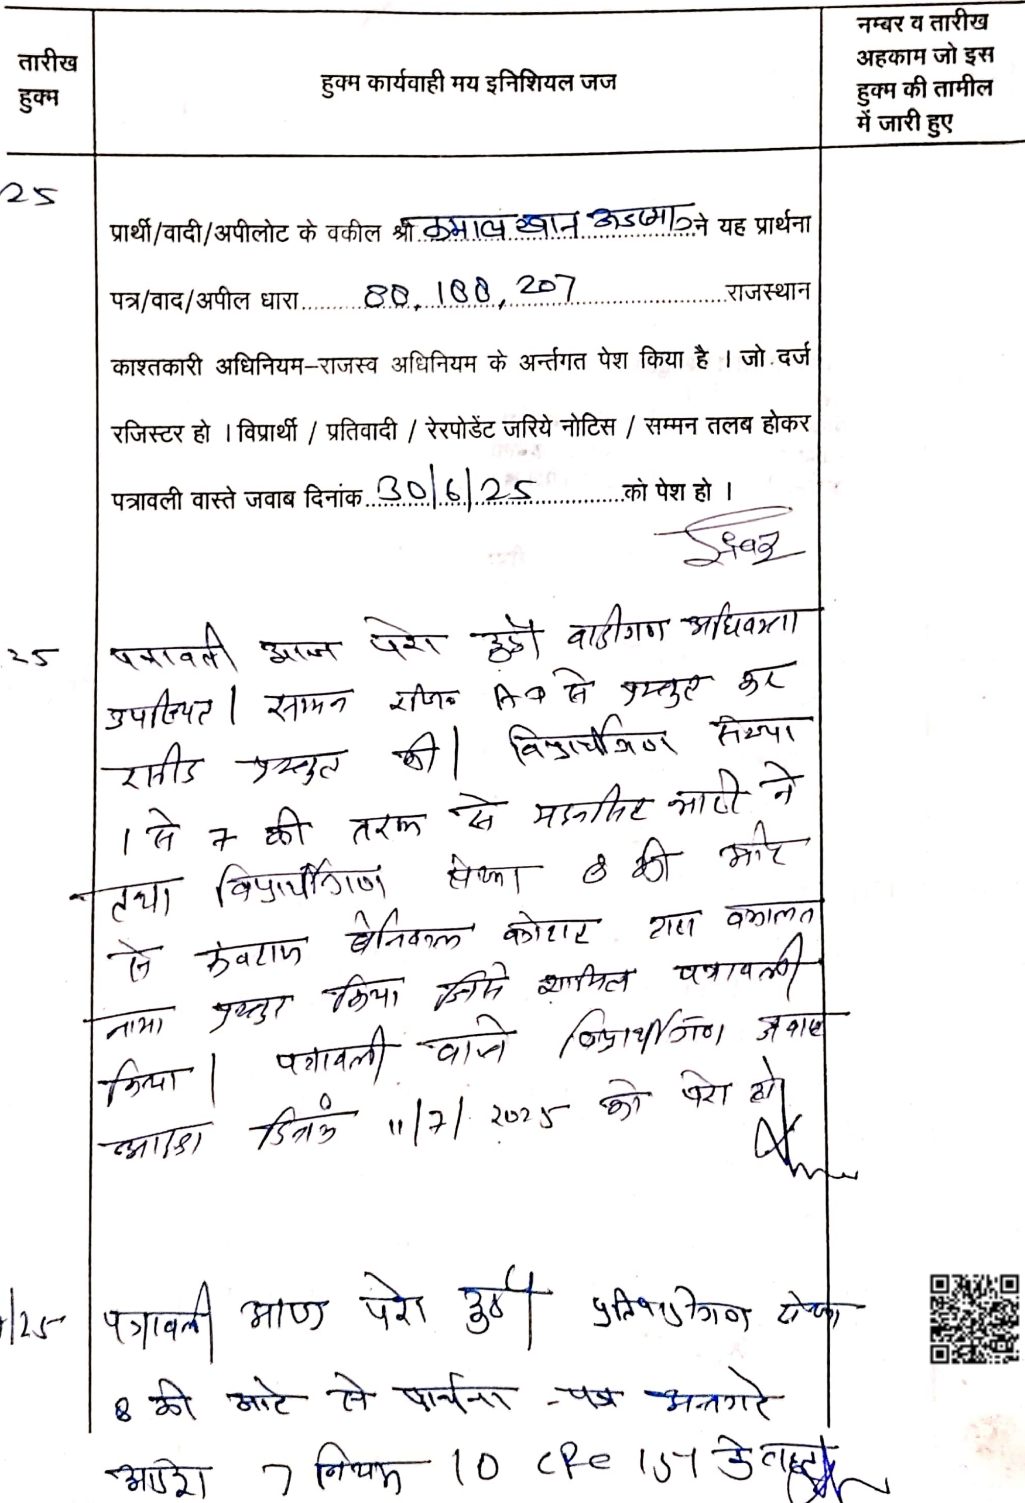 तारीख
हुक्म
हुक्म कार्यवाही मय इनिशियल जज
नम्बर व तारीख
अहकाम जो इस
हुक्म की तामील
में जारी हुए
25
प्रार्थी/वादी/अपीलोट के वकील श्री कमाल खान ने यह प्रार्थना
पत्र/वाद/अपील धारा 88, 188, 207 राजस्थान
काश्तकारी अधिनियम–राजस्व अधिनियम के अर्न्तगत पेश किया है । जो दर्ज
रजिस्टर हो । विप्रार्थी / प्रतिवादी / रेरपोडेंट जरिये नोटिस / सम्मन तलब होकर
पत्रावली वास्ते जवाब दिनांक 30/6/25 को पेश हो ।
25 पत्रावली आज पेश हुई। वादीगण अधिवक्ता
उपस्थित। सामन AD से प्रस्तुत कर
रसीद प्रस्तुत की। विप्रार्थीगण संख्या
1 से 7 की तरफ से भाटी ने
तथा विप्रार्थीगण संख्या 8 की ओर
से वकालत
नामा प्रस्तुत किया जिसे शामिल पत्रावली
किया। पत्रावली वास्ते विप्रार्थीगण जवाब
दिनांक 11/7/2025 को पेश हो।
/25 पत्रावली आज पेश हुई। प्रतिवादीगण संख्या
8 की ओर से प्रार्थना-पत्र अन्तर्गत
आदेश 7 नियम 10 CPC 151 के तहत